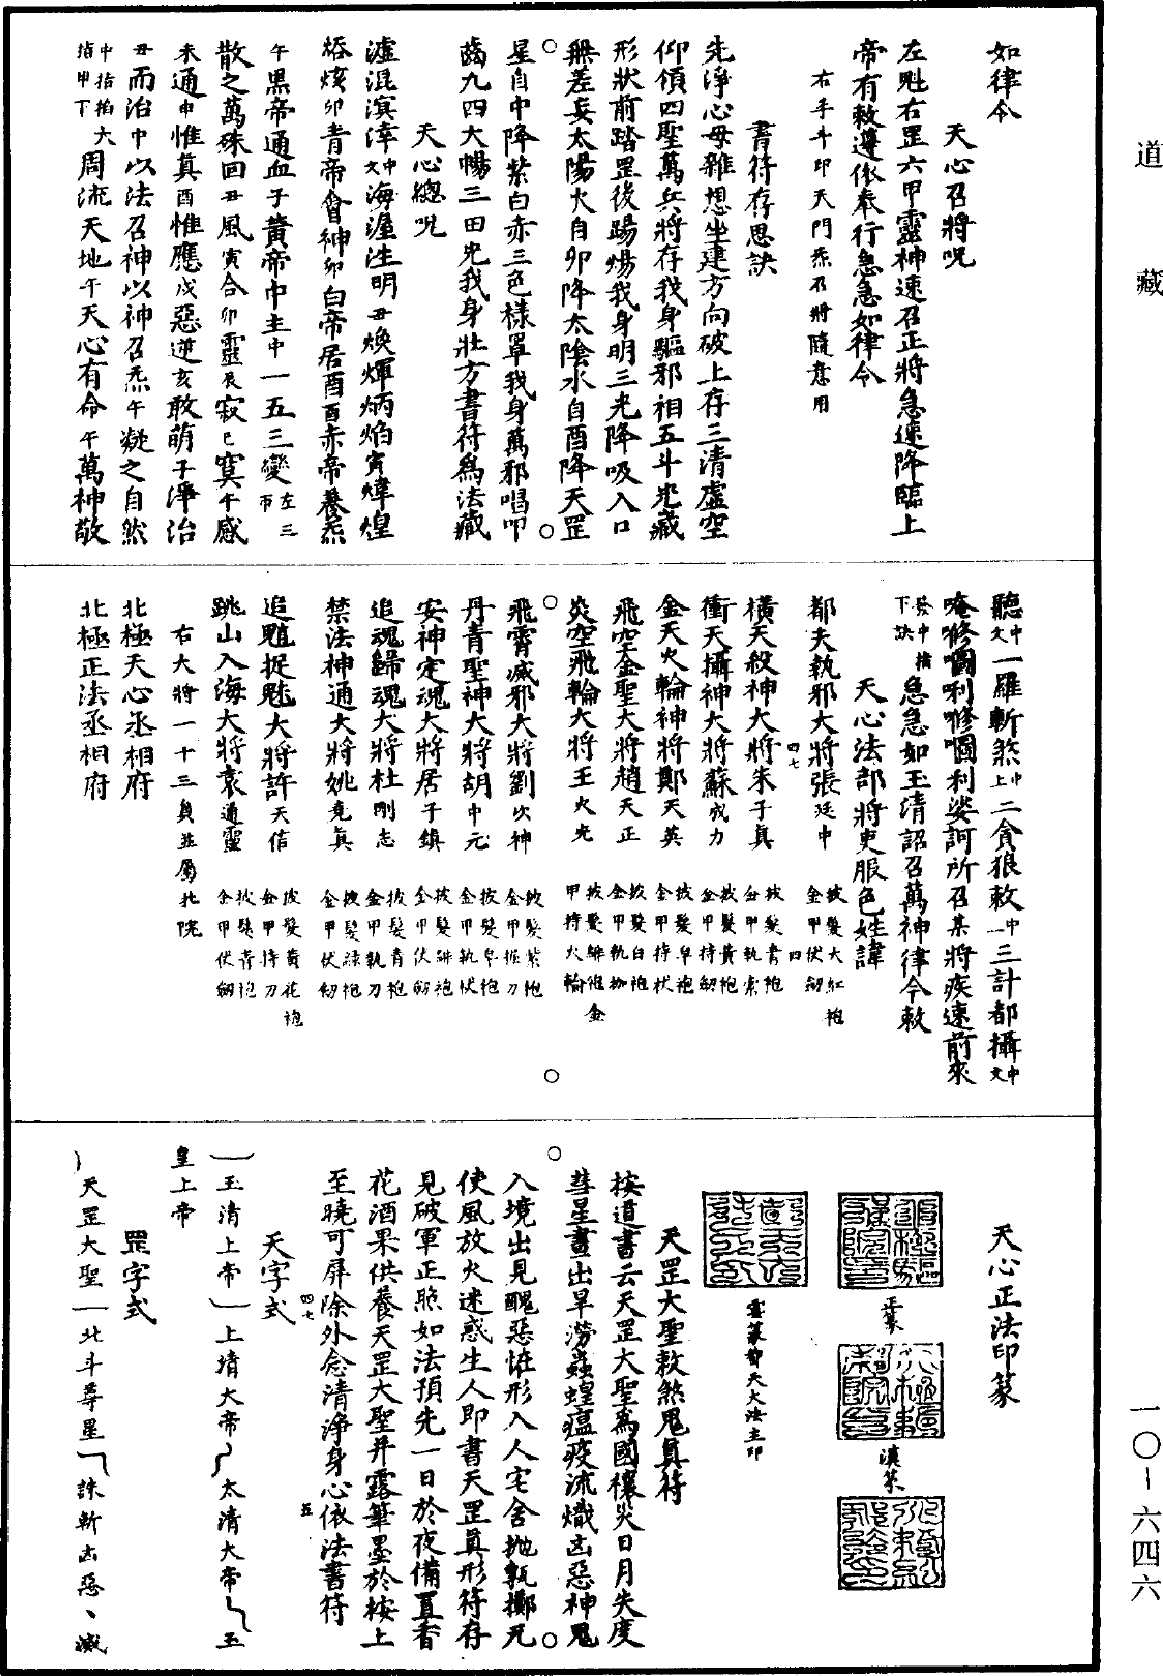 如律令
天心召將呪
左魁右罡六甲靈神速召正將急速降臨上
帝有敕遵依奉行急急如律令
右手斗印天門炁召將隨意用
書符存思訣
先淨心毋雜想坐建方向破上存三清虛空
仰傾四聖萬兵將存我身驅邪相五斗罡藏
形狀前踏罡後踢煬我身明三光降吸入口
無差妄太陽火自卯降太陰水自酉降天罡
星自中降紫白赤三色樣罩我身萬邪唱叩
齒九四大暢三田光我身壯方書符為法藏
天心總呪
澒混溟涬中文海滙泩明丑煥煇炳焰寅煒煌
卯青帝會神卯白帝居酉酉赤帝養炁
午黑帝通血子黃帝中主中一五三變左三帀
散之萬殊回丑風寅合卯靈辰寂巳寞午感
未通申惟真酉惟應戌惡逆亥敢萌子淨治
丑而治中以法召神以神召炁午凝之自然
中指拍大指甲下周流天地午天心有命午萬神敬
聽中文一羅斬煞中上二貪狼敕中一三計都攝中文
唵唦㘕唎唦㘕利娑訶所召某將疾速前來
急急如玉清詔召萬神律令敕
天心法部將吏服色姓諱
都天執邪大將張廷中 披髮大紅袍金甲伏劒
橫天殺神大將朱子真 披髮青袍金甲執索
衝天攝神大將蘇成力 披髮黃袍金甲持劒
金天火輪神將鄭天英 披髮皁袍金甲持杖
飛空金聖大將趙天正 披髮白袍金甲執枷
炎空飛輪大將王火光 披髮緋袍金甲持火輪
飛霄滅邪大將劉次神 披髮紫袍金甲握刀
丹青聖神大將胡中元 披髮皁袍金甲執伏
安神定魂大將居子鎮 披髮緋袍金甲伏劒
追魂歸魂大將杜剛志 披髮青袍金甲執刀
禁法神通大將姚堯真 披髮綠袍金甲伏劒
追魈捉魅大將許天信 披髮黃花袍金甲持刀
跳山入海大將袁通靈 披髮青袍金甲伏劒
右大將一十三員並屬北院
北極天心丞相府
北極正法丞相府
天心正法印篆
天罡大聖敕煞鬼真符
按道書云天罡大聖為國禳災日月失度
彗星晝出旱澇蟲蝗瘟疫流熾凶惡神鬼
入境出見醜惡怪形入人宅舍拋甎擲瓦
使風放火迷惑生人即書天罡真形符存
見破軍正照如法預先一日於夜備置香
花酒果供養天罡大聖并露筆墨於桉上
至曉可屏除外念清淨身心依法書符
天字式
玉清上帝 上清大帝 太清大帝 玉
皇上帝
罡字式
天罡大聖 北斗尊星 誅斬凶惡 滅
道藏
一〇-六四六